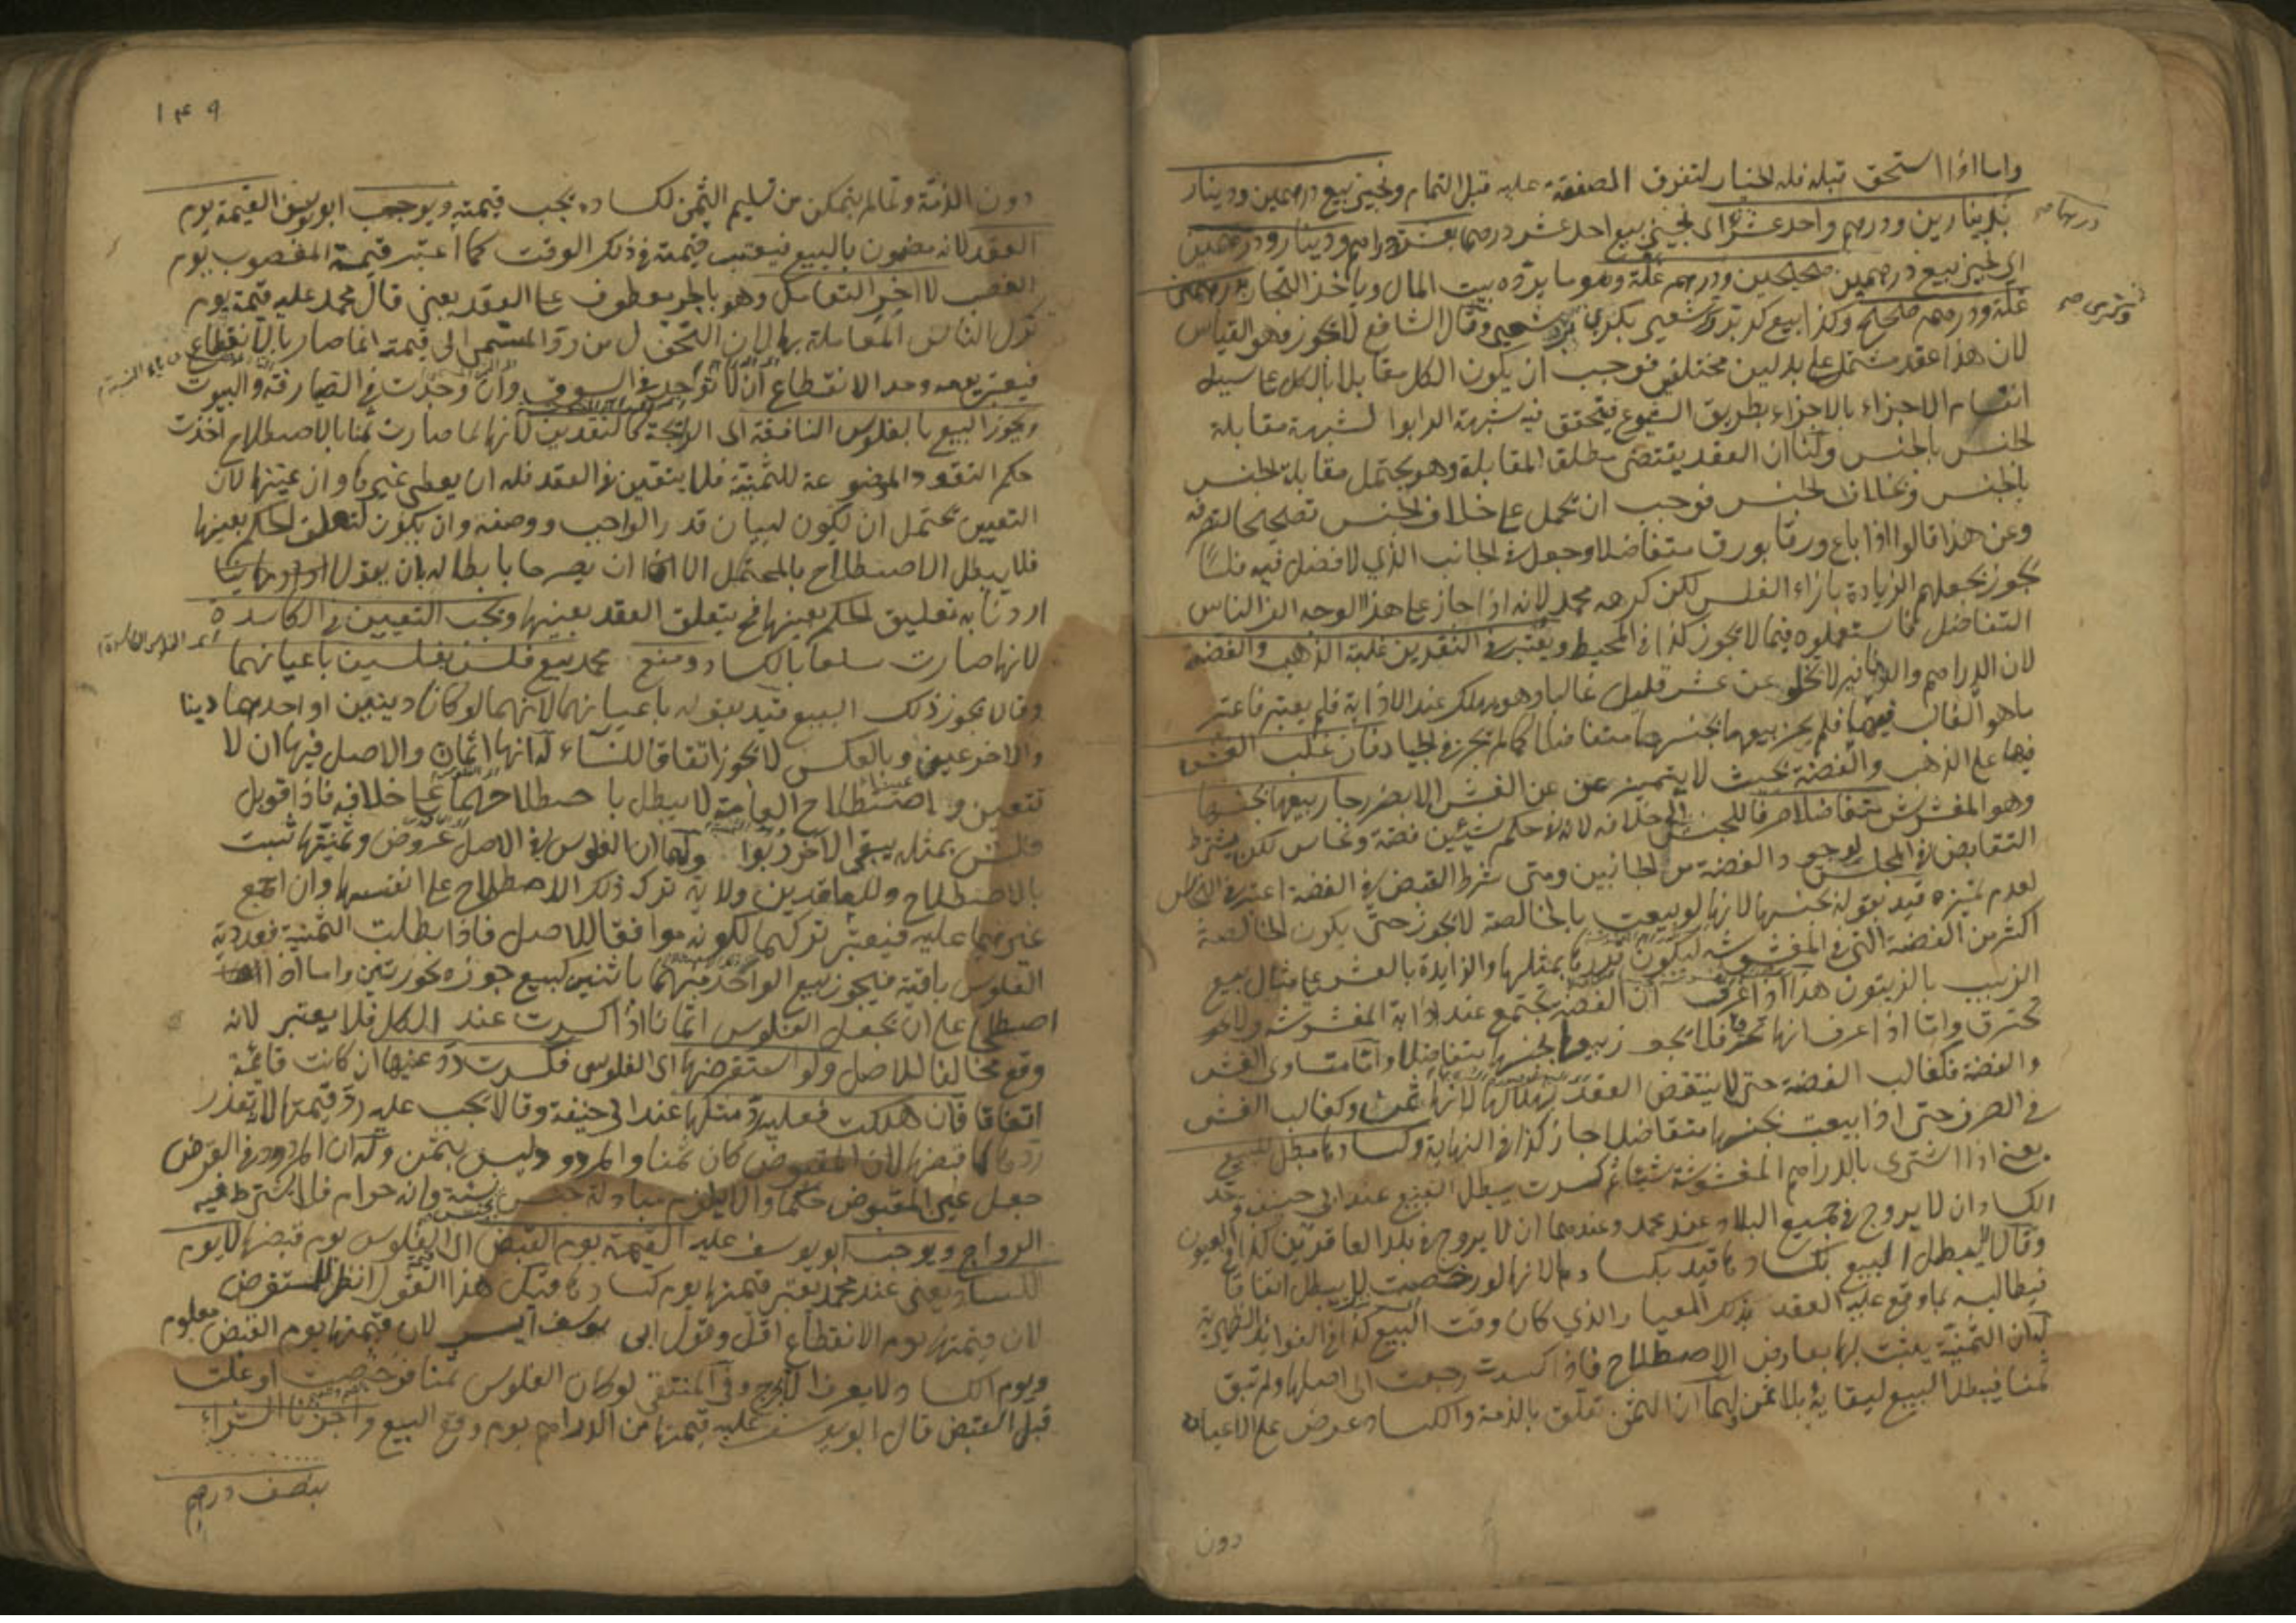 واما اذا استحق قبله فله الخيار لتفرق الصفقة عليه قبل التمام ونجيز بيع درهمين ودينار
بدينارين ودرهم واحد عشر اي نجيز بيع احد عشر درهما بعشرة دراهم ودينار ودرهمين
اي نجيز بيع درهمين صحيحين ودرهم غلة وهو ما يرده بيت المال وياخذ التجار بدرهمين
غلة ودرهم صحيح وكذا بيع كر بر وكر شعير بكري بر وشعير وقال الشافعي لا يجوز وهو القياس
لان هذا عقد مشتمل على بدلين مختلفين فوجب ان يكون الكل مقابلا بالكل على سبيل
انقسام الاجزاء بالاجزاء بطريق الشيوع فيتحقق فيه شبهة الربوا لشبهة مقابلة
الجنس بالجنس ولنا ان العقد يقتضي مطلق المقابلة وهو يحتمل مقابلة الجنس
بالجنس وبخلاف الجنس فوجب ان يحمل على خلاف الجنس تصحيحا لتصرفه
وعن هذا قالوا اذا باع ورقا بورق متفاضلا وجعل في الجانب الذي لا فضل فيه فلسا
يجوز بجعلهم الزيادة بازاء الفلس لكن كرهه محمد لانه اذا جاز على هذا الوجه الف الناس
التفاضل فاستعملوه فيما لا يجوز كذا في المحيط ويعتبر في النقدين غلبة الذهب والفضة
لان الدراهم والدنانير لا تخلو عن غش قليل غالبا وهو يهلك عند الاذابة فلم يعتبر فاعتبر
ما هو الغالب فيهما فلم يجز بيعهما بجنسهما متفاضلا كما لم يجز في الجياد فان غلب الغش
فيها على الذهب والفضة بحيث لا يتميز عن الغش الا بضرر جاز بيعها بجنسها
وهو المغشوش متفاضلا صرفا للجنس الى خلافه لانه في حكم شيئين فضة ونحاس لكن يشترط
التقابض في المجلس لوجود الفضة من الجانبين ومتى شرط القبض في الفضة اعتبر في النحاس
لعدم تميزه قيد بقوله بجنسها لانها لو بيعت بالخالصة لا يجوز حتى يكون الخالصة
اكثر من الفضة التي في المغشوشة ليكون قدرها بمثلها والزايدة بالغش على مثال بيع
الزبيب بالزيتون هذا اذا عرف ان الفضة تجتمع عند اذابة المغشوشة ولا
تحترق واما اذا عرف انها تحترق فلا يجوز بيعها بجنسها متفاضلا واما متساوي الغش
والفضة فكغالب الفضة حتى لا ينتقض العقد بهلاكها لانها ثمن وكغالب الغش
في الصرف حتى اذا بيعت بجنسها متفاضلا جاز كذا في النهاية وكسادها مبطل للبيع
يعني اذا اشترى بالدراهم المغشوشة شيئا ثم كسدت يبطل البيع عند ابي حنيفة وحد
الكساد ان لا يروج في جميع البلاد عند محمد وعندهما ان لا يروج في بلد العاقدين كذا في العيون
وقالا لا يبطل البيع بكسادها قيد بكسادها لانها لو رخصت لا يبطل اتفاقا
فيطالبه بما وقع عليه العقد بذلك المعيار الذي كان وقت البيع كذا في الفوائد الظهيرية
له ان الثمنية يثبت لها بعارض الاصطلاح فاذا كسدت رجعت الى اصلها ولم تبق
ثمنا فيبطل البيع لبقايه بلا ثمن ولهما ان الثمن تعلق بالذمة والكساد عرض على الاعيان
دون
١٤٩
دون الذمة ولما لم يتمكن من تسليم الثمن لكساده يجب قيمته ويوجب ابو يوسف القيمة يوم
العقد لانه مضمون بالبيع فيعتبر قيمته في ذلك الوقت كما اعتبر قيمة المغصوب يوم
الغصب لا اخر التعامل وهو بالجر معطوف على العقد يعني قال محمد عليه قيمته يوم
ترك الناس المعاملة بها لان التحول من رد المسمى الى قيمته انما صار بالانقطاع
فيعتبر يومه وحد الانقطاع ان لا توجد في السوق وان وجدت في الصيارفة والبيوت
ويجوز البيع بالفلوس النافقة اي الرايجة كالنقدين لانها لما صارت ثمنا بالاصطلاح اخذت
حكم النقود الموضوعة للثمنية فلا يتعين في العقد فله ان يعطي غيرها وان عينها لان
التعيين يحتمل ان يكون لبيان قدر الواجب ووصفه وان يكون لتعلق الحكم بعينها
فلا يبطل الاصطلاح بالمحتمل الا ان يصرحا بابطاله بان يقولا
اردنا به تعليق الحكم بعينها فح يتعلق العقد بعينها ويجب التعيين في الكاسدة
لانها صارت سلعا بالكساد ومنع محمد بيع فلس بفلسين باعيانهما
وقالا يجوز ذلك البيع قيد بقوله باعيانهما لانهما لو كانا دينين او احدهما دينا
والاخر عينا وبالعكس لا يجوز اتفاقا للنساء له انها اثمان والاصل فيها ان لا
تتعين واصطلاح العامة لا يبطل باصطلاحهما على خلافه فاذا قوبل
فلس بمثله يبقى الاخر ربوا ولهما ان الفلوس في الاصل عروض وثمنيتها ثبت
بالاصطلاح وللعاقدين ولاية ترك ذلك الاصطلاح على انفسهما وان اجمع
غيرهما عليه فيعتبر تركهما لكونه موافقا للاصل فاذا بطلت الثمنية فعددية
الفلوس باقية فيجوز بيع الواحد منهما باثنين كبيع جوزة بجوزتين واما اذا
اصطلحا على ان يجعل الفلوس اثمانا اذا كسدت عند الكل فلا يعتبر لانه
وقع مخالفا للاصل ولو استقرضها اي الفلوس فكسدت رد عينها ان كانت قائمة
اتفاقا فان هلكت فعليه رد مثلها عند ابي حنيفة وقالا يجب عليه رد قيمتها لتعذر
ردها كما قبضها لان المقبوض كان ثمنا والمردود ليس بثمن وله ان المردود في القرض
جعل عين المقبوض حكما والا يلزم مبادلة جنس بجنسه نسئة وانه حرام فلا يشترط فيه
الرواج ويوجب ابو يوسف عليه القيمة يوم القبض اي الفلوس يوم قبضها لا يوم
الكساد يعني عند محمد يعتبر قيمتها يوم كسادها قيل هذا القول انظر للمستقرض
لان قيمتها يوم الانقطاع اقل وقول ابي يوسف ايسر لان قيمتها يوم القبض معلوم
ويوم الكساد لا يعرف الا بحرج وفي المنتقى لو كان الفلوس ثمنا فرخصت او غلت
قبل القبض قال ابو يوسف عليه قيمتها من الدراهم يوم وقع البيع واجزنا الشراء
بنصف درهم